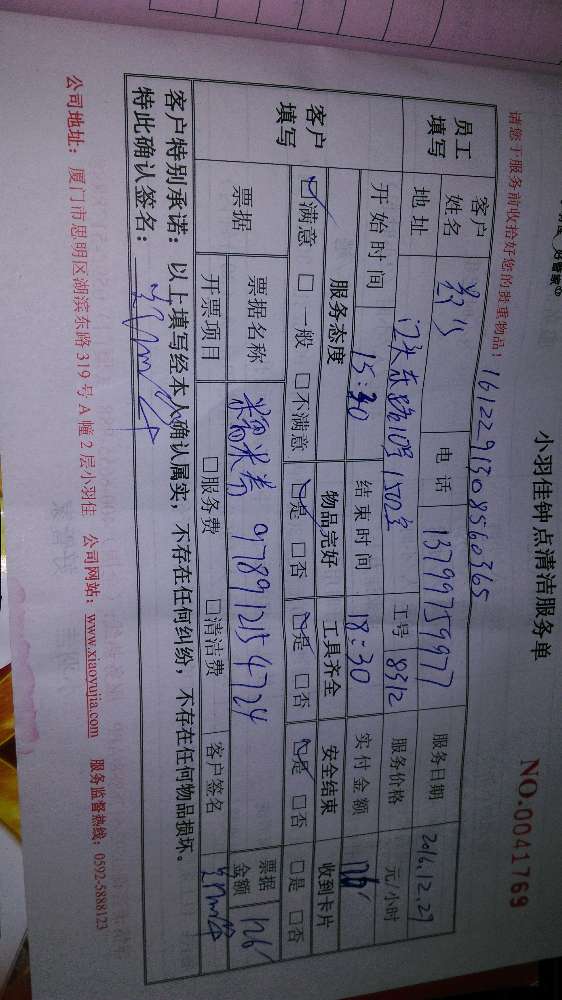 小羽佳钟点清洁服务单
NO.0041769
请您于服务前收拾好您的贵重物品!
1612291308560365
员工填写
客户姓名
电话 13799759977
服务日期 2016.12.29
地址
1502室
工号 8312
服务价格 元/小时
开始时间 15:30
结束时间 18:30
实付金额
客户填写
服务态度 物品完好 工具齐全 安全结束 收到卡片
☑满意 □一般 □不满意 ☑是 □否 ☑是 □否 ☑是 □否 □是 □否
票据
票据名称 糯米券 978912154724
票据金额 126
开票项目 □服务费 □清洁费 客户签名
客户特别承诺:以上填写经本人确认属实,不存在任何纠纷,不存在任何物品损坏。
特此确认签名:
公司地址:厦门市思明区湖滨东路319号A幢2层小羽佳 公司网站:www.xiaoyujia.com 服务监督热线:0592-5888123